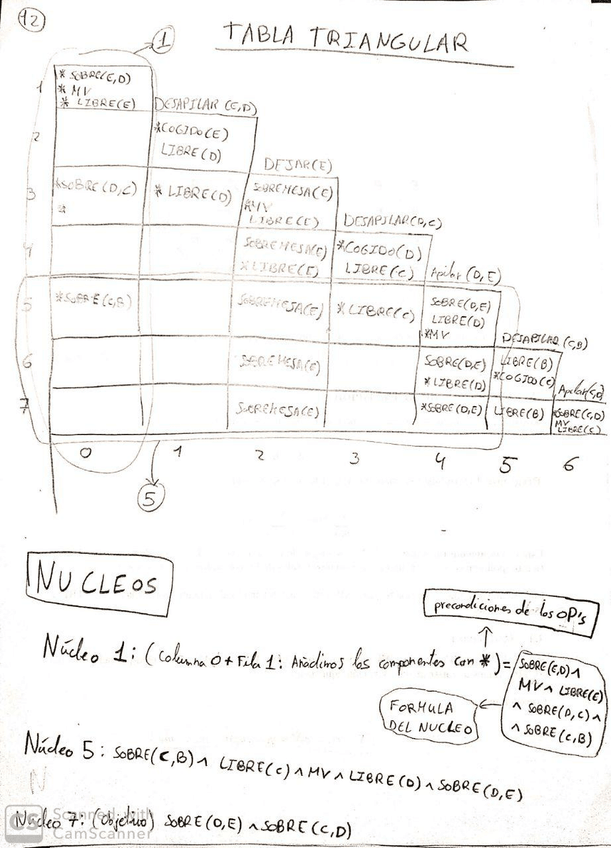 12
1
TABLA TRIANGULAR
1
* SOBRE(E,D)
* MV
* LIBRE(E)
DESAPILAR (E,D)
2
*COGIDO(E)
LIBRE(D)
DEJAR(E)
3
*SOBRE(D,C)
*
* LIBRE(D)
SOBREMESA(E)
*MV
LIBRE(E)
DESAPILAR(D,C)
4
SOBREMESA(E)
*LIBRE(E)
*COGIDO(D)
LIBRE(C)
Apilar (D,E)
5
*SOBRE(C,B)
SOBREMESA(E)
*LIBRE(C)
SOBRE(D,E)
LIBRE(D)
*MV
DESAPILAR (C,B)
6
SOBREMESA(E)
SOBRE(D,E)
*LIBRE(D)
LIBRE(B)
*COGIDO(C)
Apilar(C,D)
7
SOBREMESA(E)
*SOBRE(D,E)
LIBRE(B)
*SOBRE(C,D)
MV
LIBRE(C)
0 1 2 3 4 5 6
5
NUCLEOS
precondiciones de los OP's
Núcleo 1: (Columna 0 + Fila 1: Añadimos los componentes con *) = SOBRE(E,D) ∧
MV ∧ LIBRE(E)
∧ SOBRE(D,C) ∧
∧ SOBRE(C,B)
FORMULA
DEL NUCLEO
Núcleo 5: SOBRE(C,B) ∧ LIBRE(C) ∧ MV ∧ LIBRE(D) ∧ SOBRE(D,E)
N
CS Scanned with
CamScanner
Núcleo 7: (Objetivo) SOBRE(D,E) ∧ SOBRE(C,D)